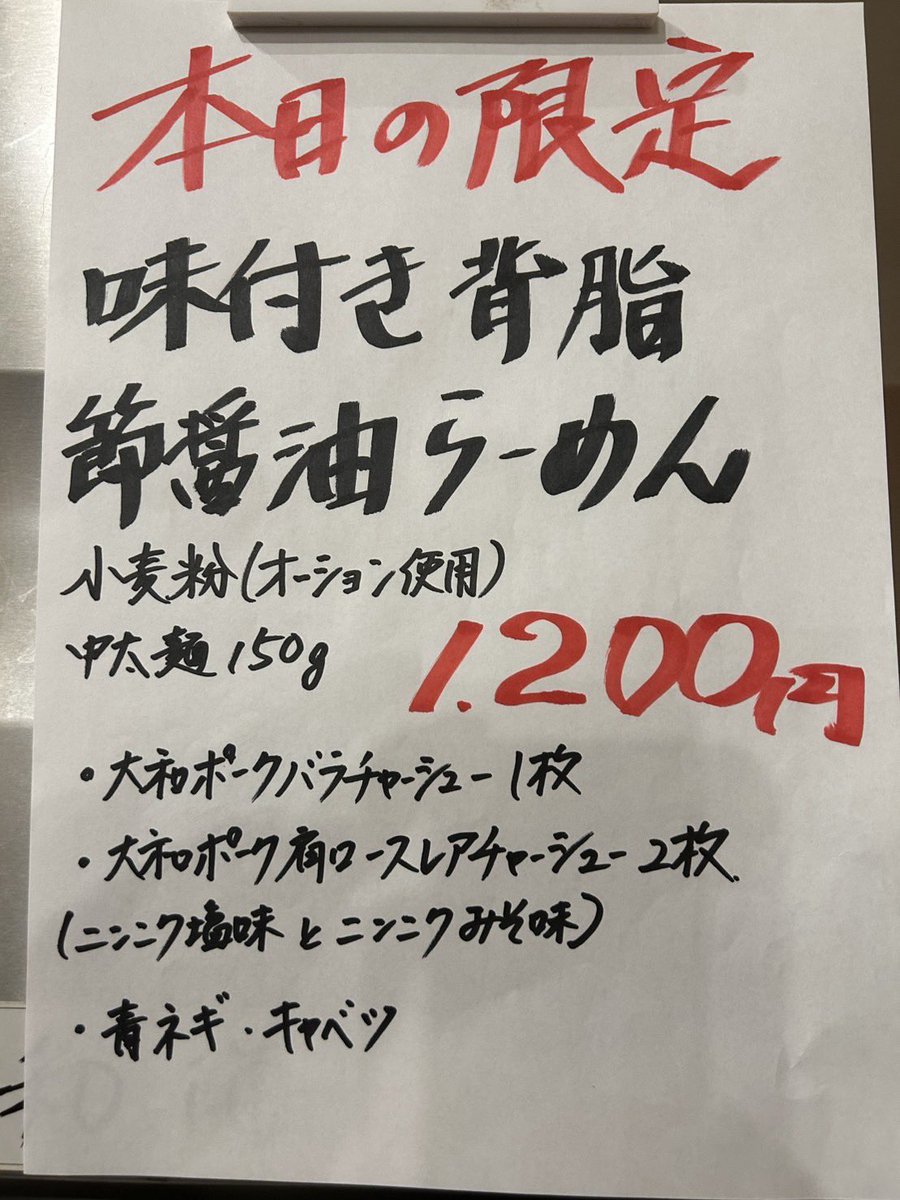 本日の限定
味付き背脂
節醤油らーめん
小麦粉(オーション使用)
中太麺150g
1.200円
・大和ポークバラチャーシュー1枚
・大和ポーク肩ロースレアチャーシュー2枚.
(ニンニク塩味とニンニクみそ味)
・青ネギ・キャベツ